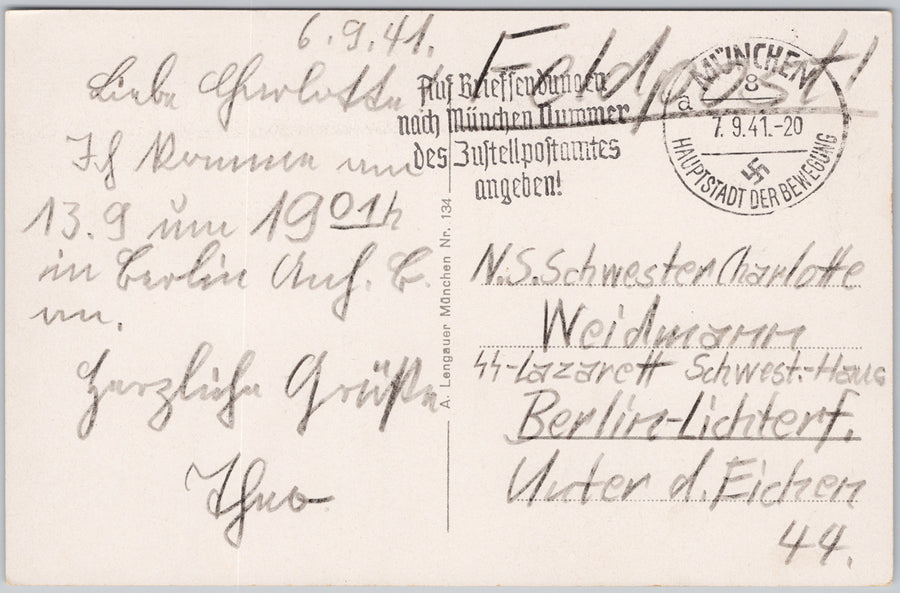 6.9.41.
Liebe Charlotte!
Ich komme am
13.9 um 19 01 h
in Berlin Anh. B.
an.
Herzliche Grüße
Theo
A. Lengauer München Nr. 134
Feldpost!
Auf Briefsendungen
nach München Nummer
des Zustellpostamtes
angeben!
MÜNCHEN
8
a
7.9.41.-20
HAUPTSTADT DER BEWEGUNG
N.S. Schwester Charlotte
Weidmann
SS-Lazarett Schwest.-Haus
Berlin-Lichterf.
Unter d. Eichen
44.